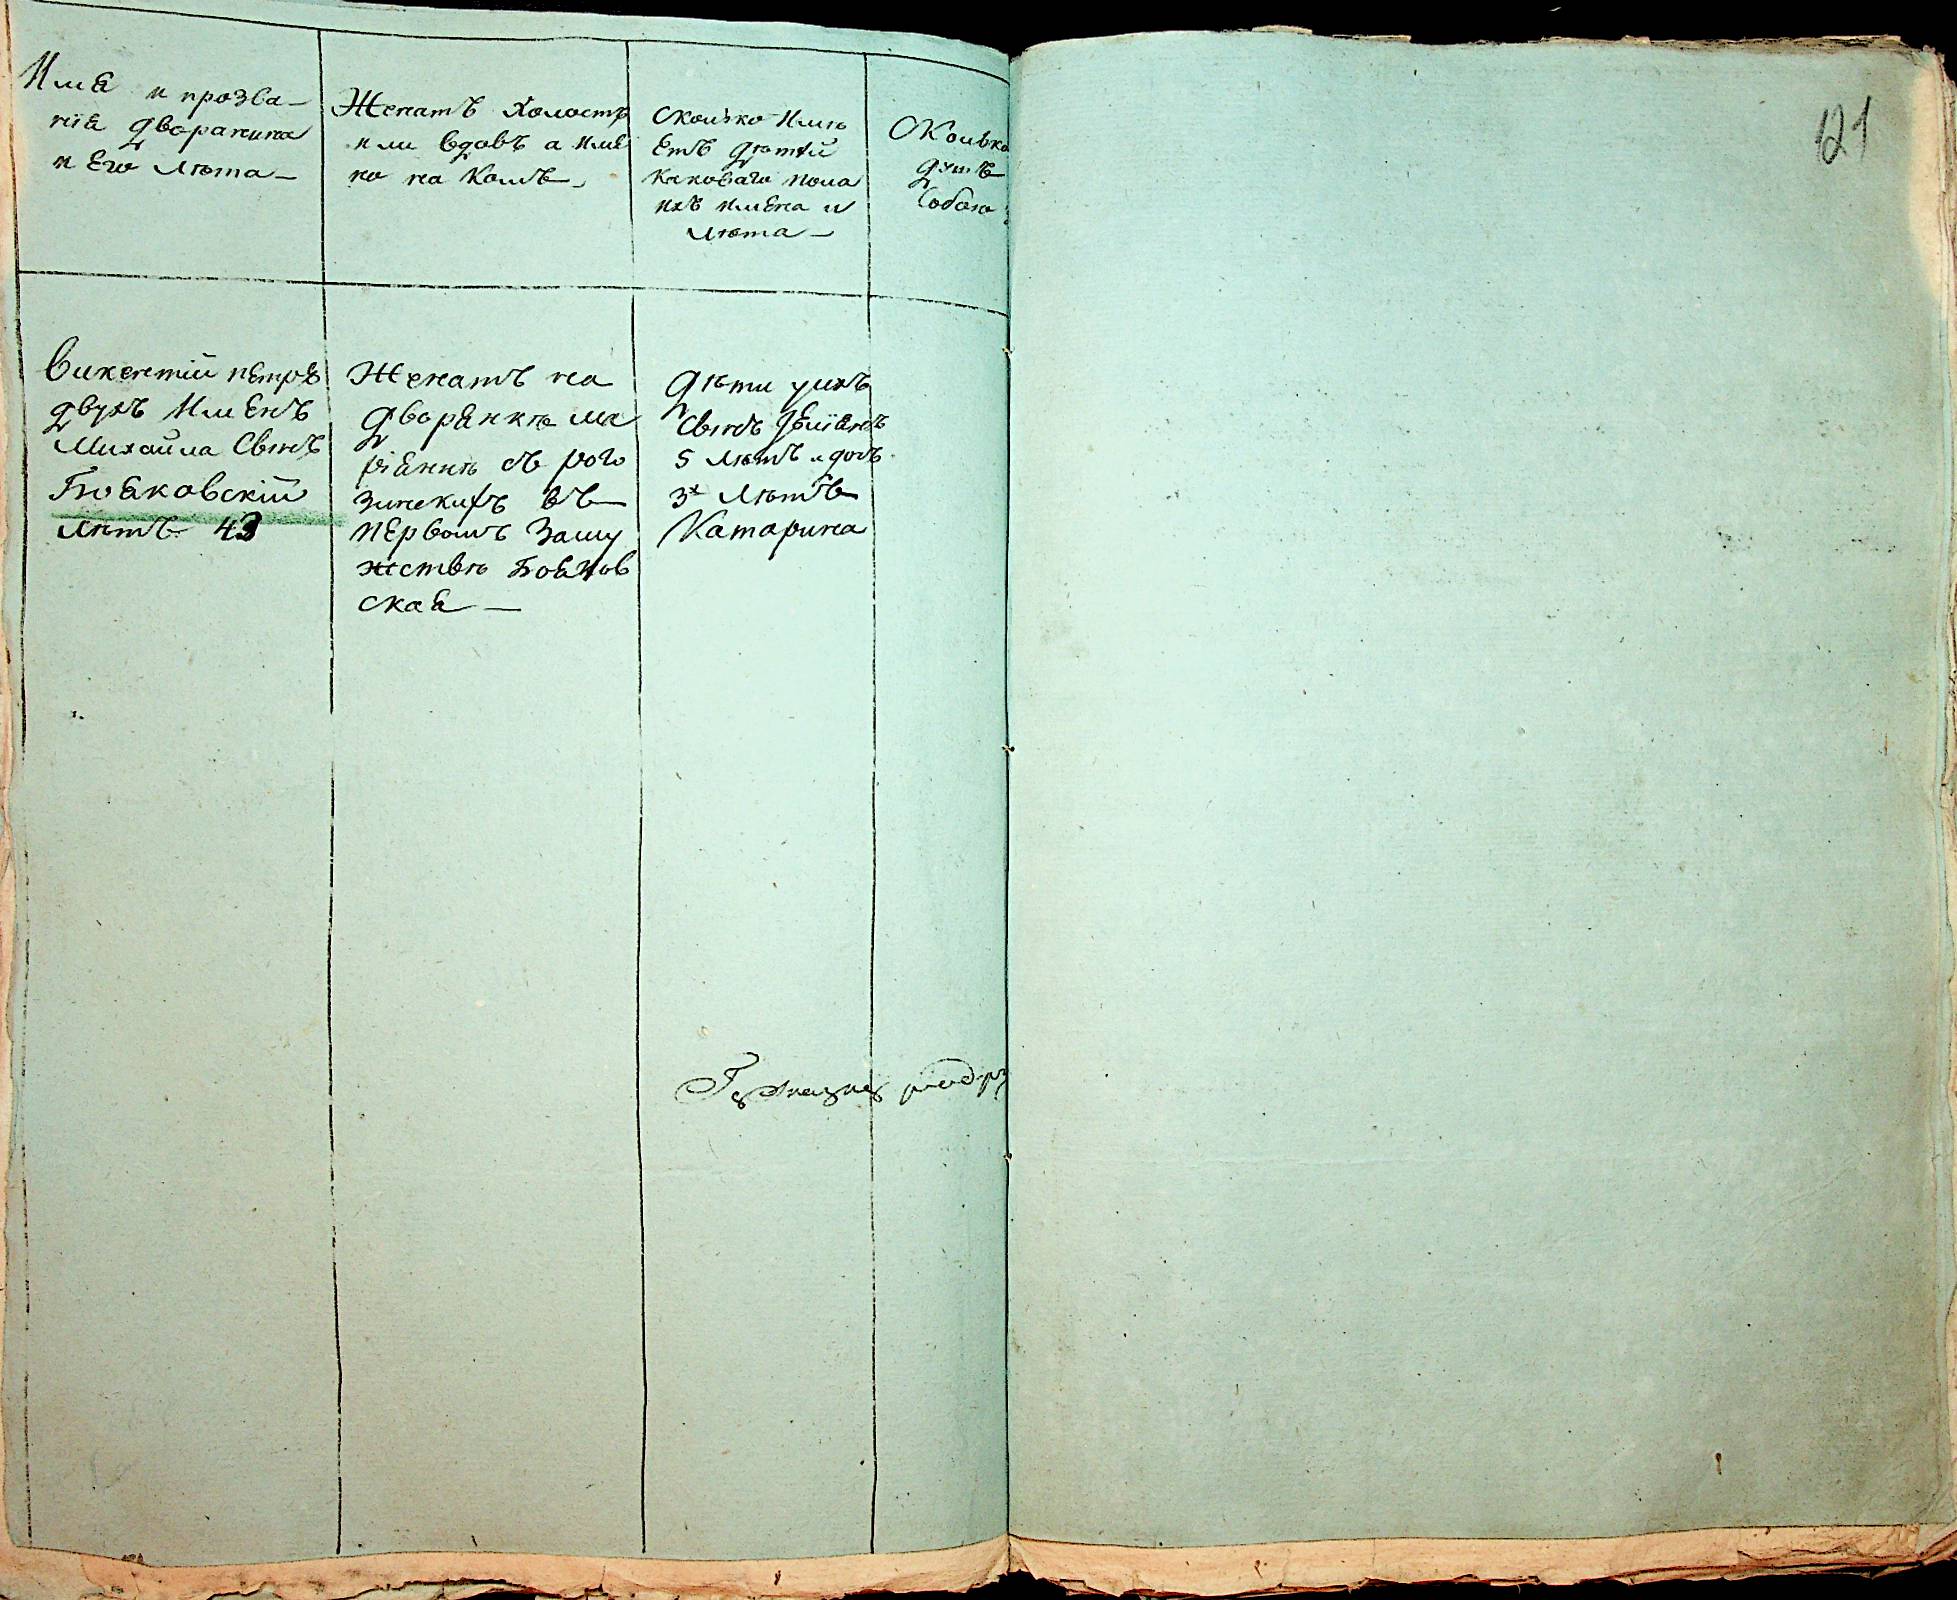 Имя и прозва-
нія дворянина
и Его лѣта-
Женатъ Холостъ
или вдовъ а имѣ
но на комъ
Сколько Имѣ
етъ дѣтей
каковаго пола
ихъ имена и
лѣта-
Сколько
душъ
Собою
121
Викентій Петръ
двухъ Именъ
Михайла Сынъ
Бояковскій
лѣтъ 43
Женатъ на
дворянкѣ Ма
ріаннѣ съ рого
зинскихъ въ
первомъ заму
жствѣ Бояков
ская-
Дѣти у ихъ
Сынъ
5 лѣтъ и дочь
3х лѣтъ
Катарина